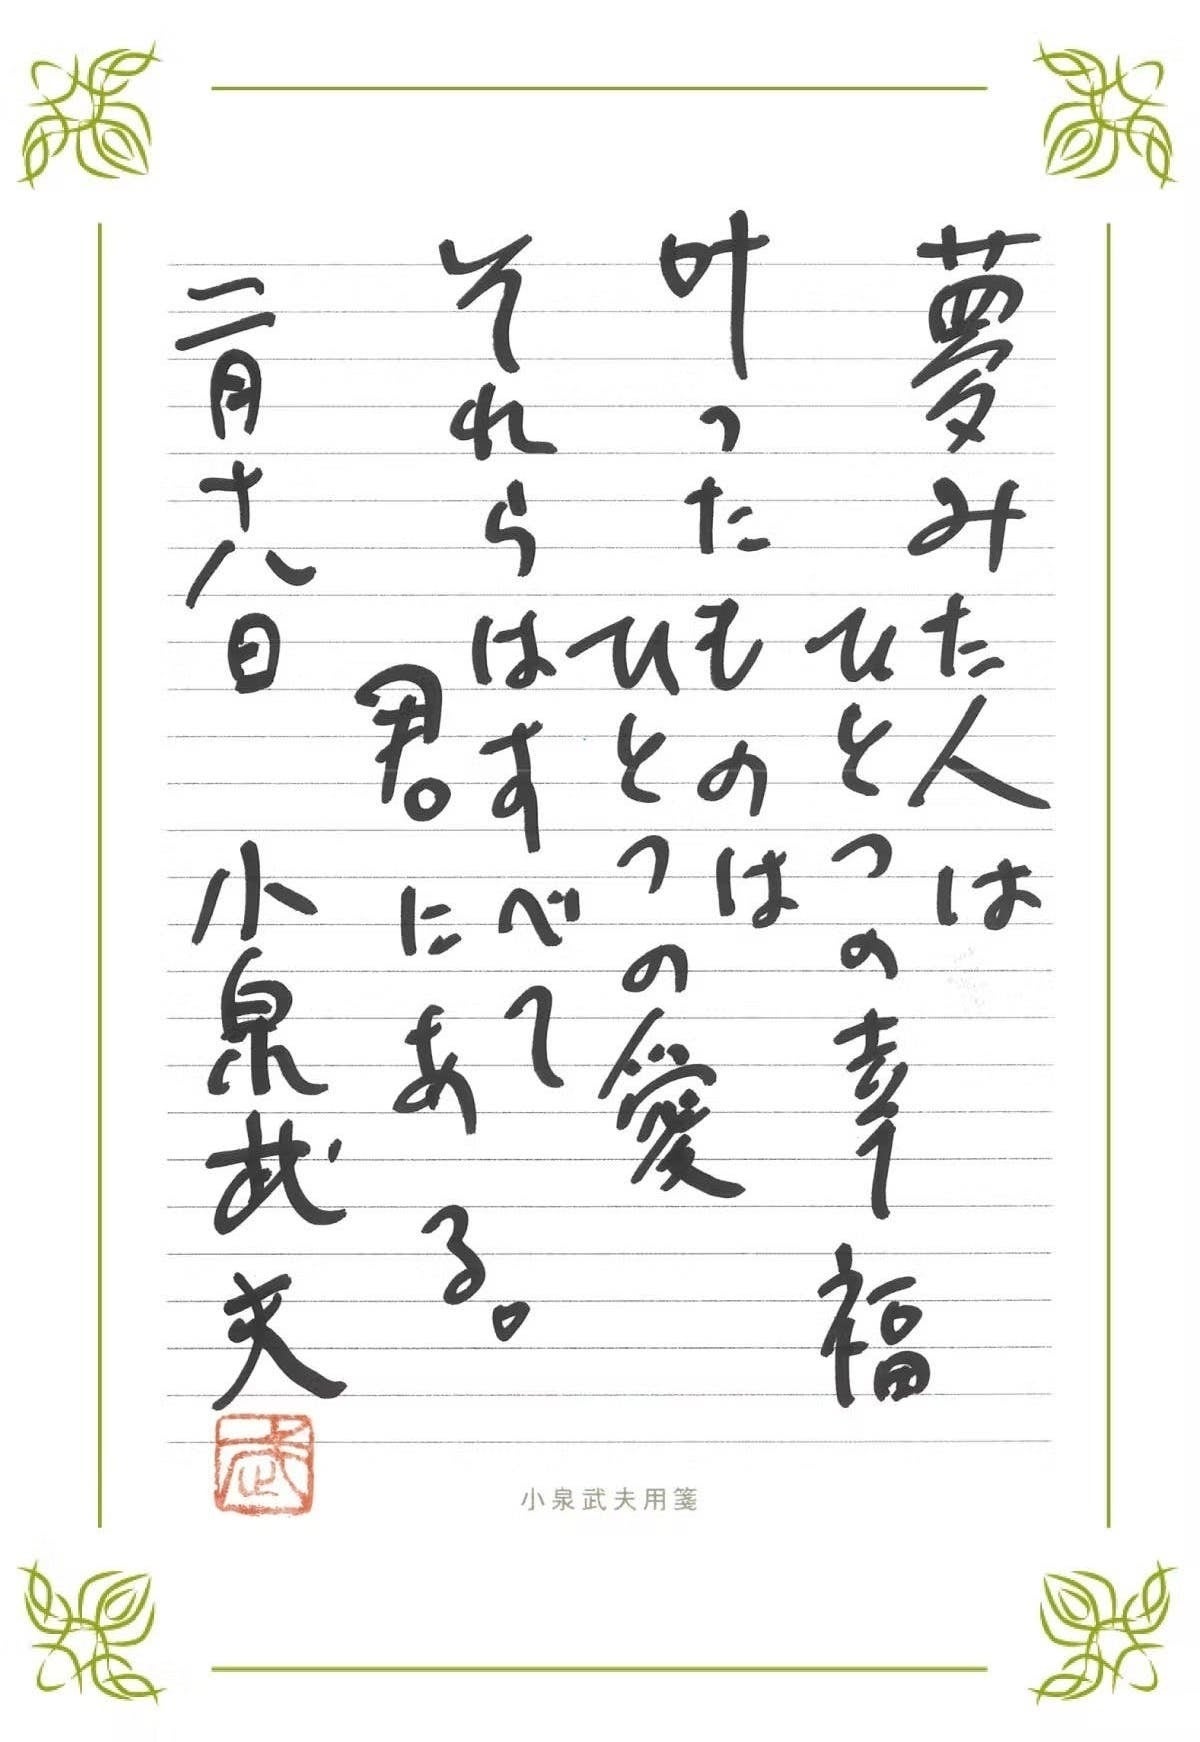 夢みた人は
ひとつの幸福
叶ったものは
ひとつの愛
それらはすべて
君。にある。
二月十八日 小泉武夫
武
小泉武夫用箋